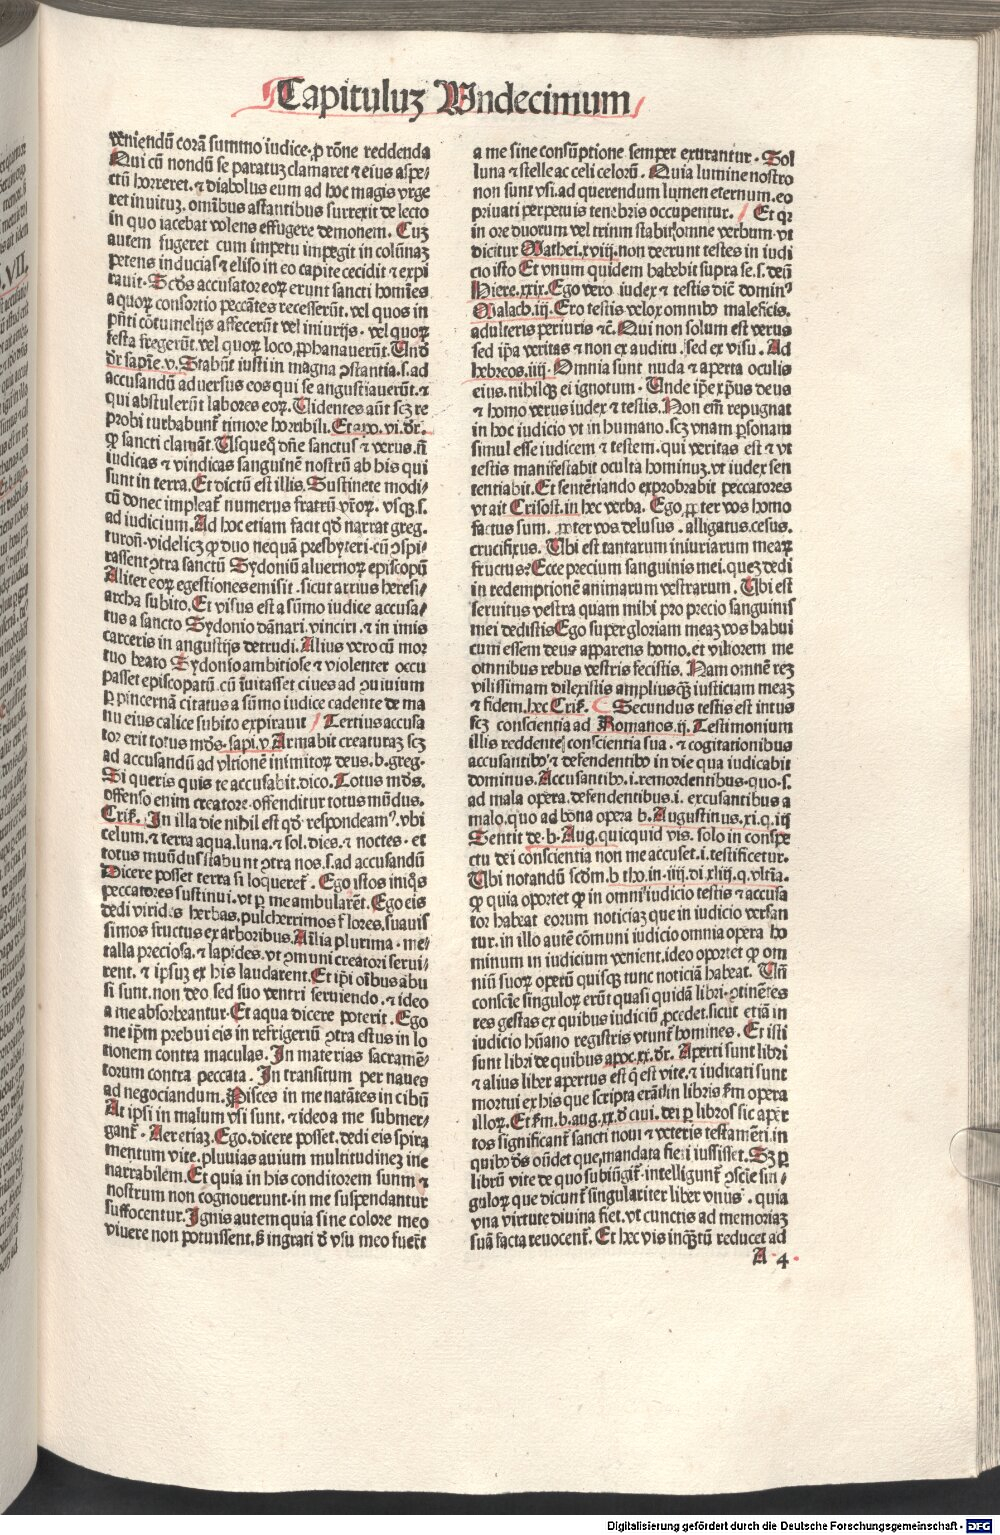 Capituluꝫ Vndecimum
veniendū corā summo iudice. ꝓ rōne reddenda
Qui cū nondū se paratuꝫ clamaret ⁊ eius aspe⸗
ctū horreret. ⁊ diabolus eum ad hoc magis vrge
ret inuituꝫ. omībus astantibus surrexit de lecto
in quo iacebat volens effugere demonem. Cuꝫ
autem fugeret cum impetu impegit in colūnaꝫ
petens inducias ⁊ eliso in eo capite cecidit ⁊ expi
rauit. Scd̄s accusator eoꝝ erunt sancti homīes
a quoꝝ consortio peccātes recesserūt. vel quos in
pn̄ti cōtumelijs affecerūt vel iniurijs. vel quoꝝ
festa fregerūt. vel quoꝝ loco ꝓphanauerūt. Vnd̄
dr̄ sapīe. v. Stabūt iusti in magna ꝯstantia. s. ad
accusandū aduersus eos qui se angustiauerūt. ⁊
qui abstulerūt labores eoꝝ. Videntes aūt scꝫ re
probi turbabunt̄ timore horribili. Et apo. vi. dr̄.
ꝙ sancti clamāt. Vsquequo dn̄e sanctus ⁊ verus. n̄
iudicas ⁊ vindicas sanguinē nostrū ab his qui
sunt in terra. Et dictū est illis. Sustinete modi⸗
cū donec impleat̄ numerus fratrū vr̄oꝝ. vsqꝫ. s.
ad iudicium. Ad hoc etiam facit qd̄ narrat greg.
turoñ. videlicꝫ ꝙ duo nequā presbyteri. cū ꝯspi⸗
rassent ꝯtra sanctū Sydoniū aluernoꝝ episcopū
Aliter eoꝝ egestiones emisit. sicut arrius heresi⸗
archa subito. Et visus est a sūmo iudice accusa⸗
tus a sancto Sydonio dānari. vinciri. ⁊ in imis
carceris in angustijs detrudi. Alius vero cū mor
tuo beato Sydonio ambitiose ⁊ violenter occu
passet episcopatū. cū īuitasset ciues ad ꝯuiuium
ꝑ pincernā citatus a sūmo iudice cadente de ma
nu eius calice subito expirauit Tertius accusa
tor erit totus mūdꝰs. sapi. v. Armabit creaturaꝫ scꝫ
ad accusandū ad vltionē inimicoꝝ deus. b. greg.
Si queris quis te accusabit. dico. Totus mūdꝰs.
offenso enim creatore. offenditur totus mūdus.
Cris̄. In illa die nihil est qd̄ respondeamꝰ. vbi
celum. ⁊ terra aqua. luna. ⁊ sol. dies. ⁊ noctes. et
totus mūndus stabunt ꝯtra nos. s. ad accusandū
Dicere posset terra si loqueret̄. Ego istos iniqͦs
peccatores sustinui. vt ꝑ me ambularēt. Ego eis
dedi virides herbas. pulcherrimos flores. suauis
simos fructus ex arboribus. Aīalia plurima. me⸗
talla preciosa. ⁊ lapides. vt oīum creatori serui⸗
rent. ⁊ ipsuꝫ ex his laudarent. Et ipi oībus abu
si sunt. non deo sed suo ventri seruiendo. ⁊ ideo
a me absorbeantur. Et aqua dicere poterit. Ego
me ip̄m prebui eis in refrigeriū ꝯtra estus in lo
tionem contra maculas. In materias sacramē⸗
torum contra peccata. In transitum per naues
ad negociandum. Pisces in me natātes in cibū
At ipsi in malum vsi sunt. ⁊ ideo a me submer⸗
gant̄. Aer etiaꝫ. Ego. dicere posset. dedi eis spira
mentum vite. pluvias auium multitudineꝫ ine
narrabilem. Et quia in his conditorem suum ⁊
nostrum non cognouerunt. in me suspendantur
suffocentur. Ignis autem quia sine colore meo
viuere non potuissent. ⁊ ingrati d̄ vsu meo fuer̄t
a me sine consūptione semper exurantur. Sol
luna ⁊ stelle ac celi celorū. Quia lumine nostro
non sunt vsi. ad querendum lumen eternum. eo
priuati perpetuis tenebris occupentur. Et qꝛ
in ore duorum vel trium stabit omne verbum. vt
dicitur Mathei. xviij. non deerunt testes in iudi
cio isto Et vnum quidem habebit supra se. s. deū
Hiere. xxix. Ego vero iudex ⁊ testis dicit dominꝰ
Malach. iij. Ero testis velox omnibꝰ maleficis.
adulteris periuris ⁊c̄. Qui non solum est verus
sed ip̄a veritas ⁊ non ex auditu. sed ex visu. Ad
hebreos. iiij. Omnia sunt nuda ⁊ aperta oculis
eius. nihilqꝫ ei ignotum. Vnde ip̄e xp̄us deus
⁊ homo verus iudex ⁊ testis. Non em̄ repugnat
in hoc iudicio vt in humano. scꝫ vnam ꝑsonam
simul esse iudicem ⁊ testem. qui veritas est ⁊ vt
testis manifestabit occulta hominuꝫ. vt iudex sen
tentiabit. Et sentētiando exprobrabit peccatores
vt ait Crisost. in hec verba. Ego ꝓpter vos homo
factus sum. ꝓpter vos delusus. alligatus. cesus.
crucifixus. Vbi est tantarum iniuriarum mearꝝ
fructus? Ecce precium sanguinis mei. queꝫ dedi
in redemptionē animarum vestrarum. Vbi est
seruitus vestra quam mihi pro precio sanguinis
mei dedistis Ego super gloriam meaꝫ vos habui
cum essem deus apparens homo. et viliorem me
omnibus rebus vestris fecistis. Nam omnē reꝫ
vilissimam dilexistis ampliusqꝫ iusticiam meaꝫ
⁊ fidem. hec Cris̄. Secundus testis est intus
scꝫ conscientia ad Romanos. ij. Testimonium
illis reddente conscientia sua. ⁊ cogitationibus
accusantibꝰ ⁊ defendentibꝰ in die qua iudicabit
dominus. Accusantibꝰ. i. remordentibus. quo. s.
ad mala opera. defendentibus. i. excusantibus a
malo. quo ad bona opera b. Augustinus. xi. q. iij
Sentit de. b. Aug. quicquid vis. solo in conspe
ctu dei conscientia non me accuset. i. testificetur.
Vbi notandū scd̄m. b tho. in. iiij. di. xliij. q. vltīa.
ꝙ quia oportet ꝙ in omni iudicio testis ⁊ accusa
tor habeat eorum noticiaꝫ que in iudicio versan
tur. in illo autē cōmuni iudicio omnia opera ho
minum in iudicium venient. ideo oportet ꝙ om
niū suoꝝ operū quisqꝫ tunc noticiā habeat. Vn̄
consciē singuloꝝ erūt quasi quidā libri. ꝯtinētes
res gestas ex quibus iudiciū ꝓcedet. sicut etiā in
iudicio hūano registris vtunt̄ homines. Et isti
sunt libri de quibus apoc. xx. dr̄. Aperti sunt libri
⁊ alius liber apertus est q̇ est vite. ⁊ iudicati sunt
mortui ex his que scripta erāt in libris s̄m opera
illoꝝ. Et s̄m. b. aug. xx. d̄ ciui. dei ꝑ libros sic aper
tos significant̄ sancti noui ⁊ veteris testamēti. in
quibꝰ ds̄ on̄det que mandata fieri iussisset. Sꝫ ꝑ
librū vite de quo subiūgit̄. intelligunt̄ ꝯscie sin⸗
guloꝝ que dicunt̄ singulariter liber vnus. quia
vna virtute diuina fiet. vt cunctis ad memoriaꝫ
sua facta reuocent̄. Et hec vis inqͣꝫtū reducet ad
A 4
Digitalisierung gefördert durch die Deutsche Forschungsgemeinschaft - DFG